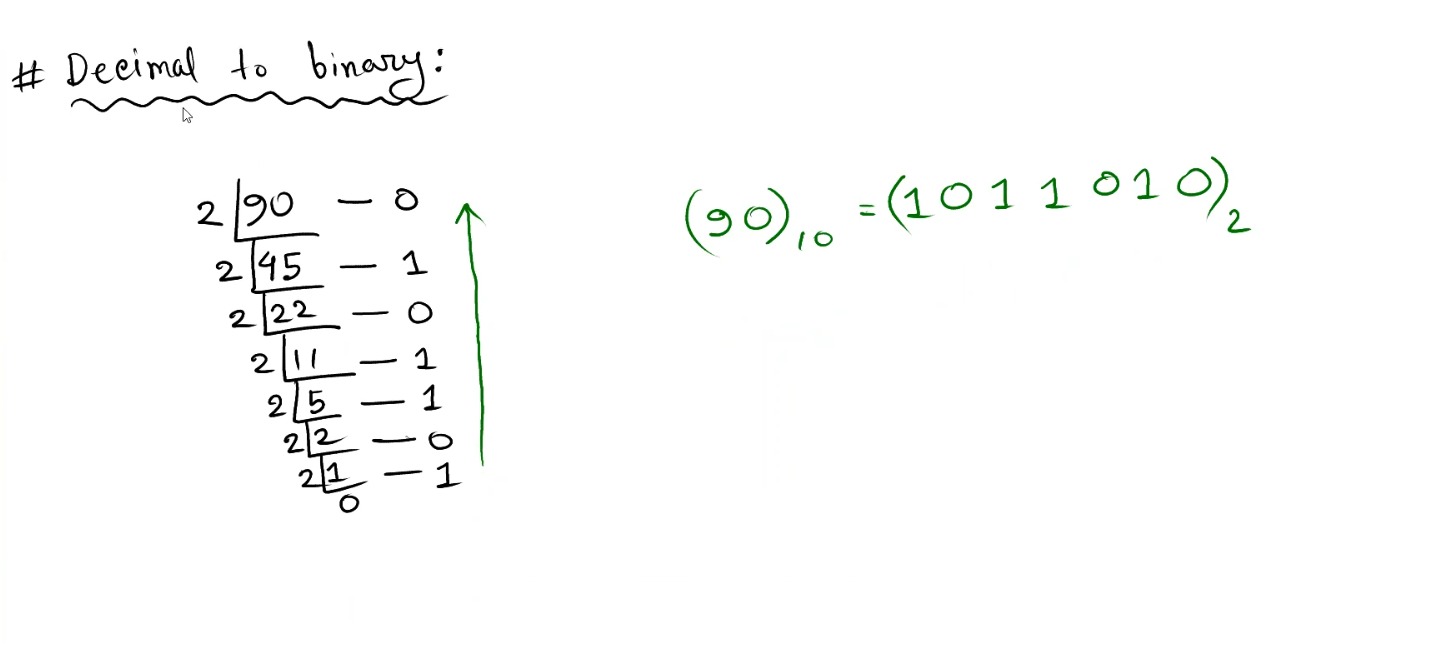 # Decimal to binary:
2 90 — 0
2 45 — 1
2 22 — 0
2 11 — 1
2 5 — 1
2 2 — 0
2 1 — 1
0
(90)10 = (1 0 1 1 0 1 0)2